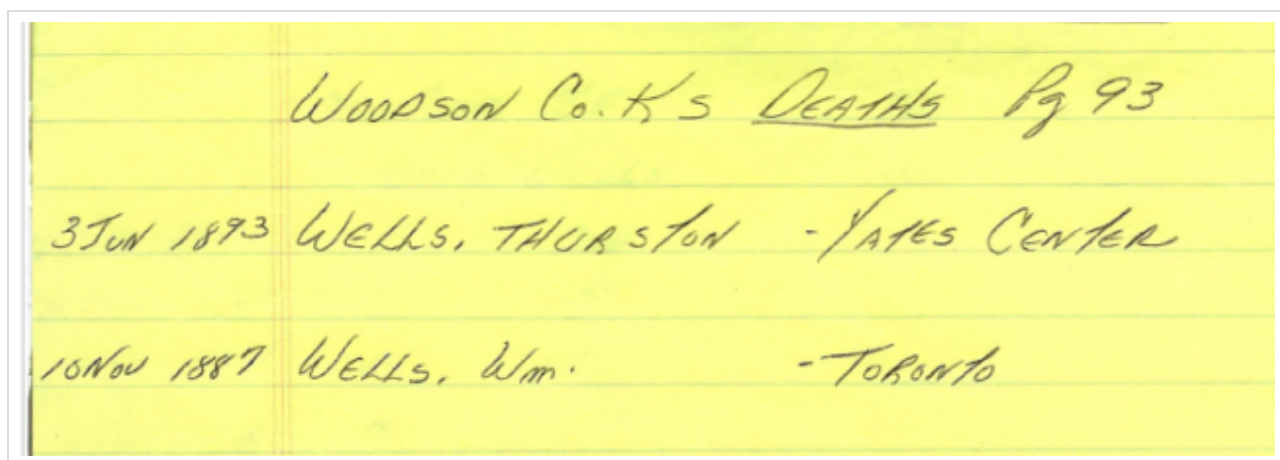 Woodson Co. Ks Deaths Pg 93
3 Jun 1893 Wells, Thurston - Yates Center
10 Nov 1887 Wells, Wm. - Toronto